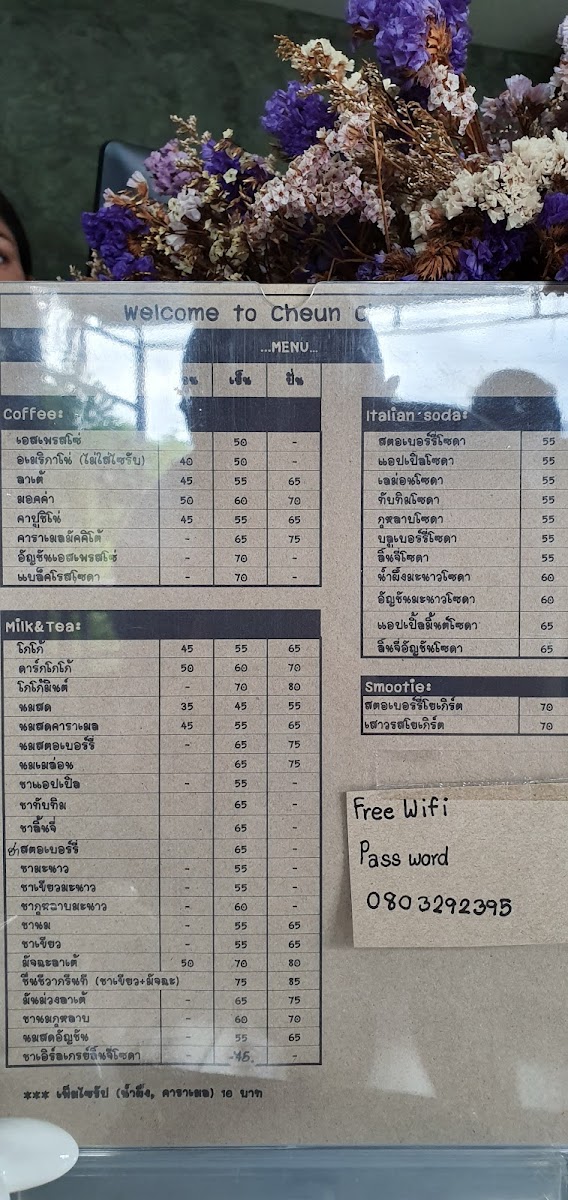 Welcome to Cheun C
...MENU...
เย็น ปั่น
Coffee:
เอสเพรสโซ่ 50 -
อเมริกาโน่ (ไม่ใส่ไซรัป) 40 50 -
ลาเต้ 45 55 65
มอคค่า 50 60 70
คาปูชิโน่ 45 55 65
คาราเมลมัคคิโต้ - 65 75
อัญชันเอสเพรสโซ่ - 70 -
แบล็คโรสโซดา - 70 -
Milk&Tea:
โกโก้ 45 55 65
ดาร์กโกโก้ 50 60 70
โกโก้มินต์ - 70 80
นมสด 35 45 55
นมสดคาราเมล 45 55 65
นมสตอเบอร์รี่ - 65 75
นมเมล่อน 65 75
ชาแอปเปิ้ล - 55 -
ชาทับทิม 65 -
ชาลิ้นจี่ 65 -
ชาสตอเบอร์รี่ 65 -
ชามะนาว - 55 -
ชาเขียวมะนาว - 55 -
ชากุหลาบมะนาว - 60 -
ชานม - 55 65
ชาเขียว - 55 65
มัจฉะลาเต้ 50 70 80
ชื่นชีวากรีนที (ชาเขียว+มัจฉะ) 75 85
มันม่วงลาเต้ - 65 75
ชานมกุหลาบ - 60 70
นมสดอัญชัน - 55 65
ชาเอิร์ลเกรย์ลิ้นจี่โซดา - 45 -
*** เพิ่มไซรัป (น้ำผึ้ง, คาราเมล) 10 บาท
Italian soda:
สตอเบอร์รี่โซดา 55
แอปเปิ้ลโซดา 55
เลม่อนโซดา 55
ทับทิมโซดา 55
กุหลาบโซดา 55
บลูเบอร์รี่โซดา 55
ลิ้นจี่โซดา 55
น้ำผึ้งมะนาวโซดา 60
อัญชันมะนาวโซดา 60
แอปเปิ้ลมิ้นต์โซดา 65
ลิ้นจี่อัญชันโซดา 65
Smootie:
สตอเบอร์รี่โยเกิร์ต 70
เสาวรสโยเกิร์ต 70
Free Wifi
Pass word
0803292395